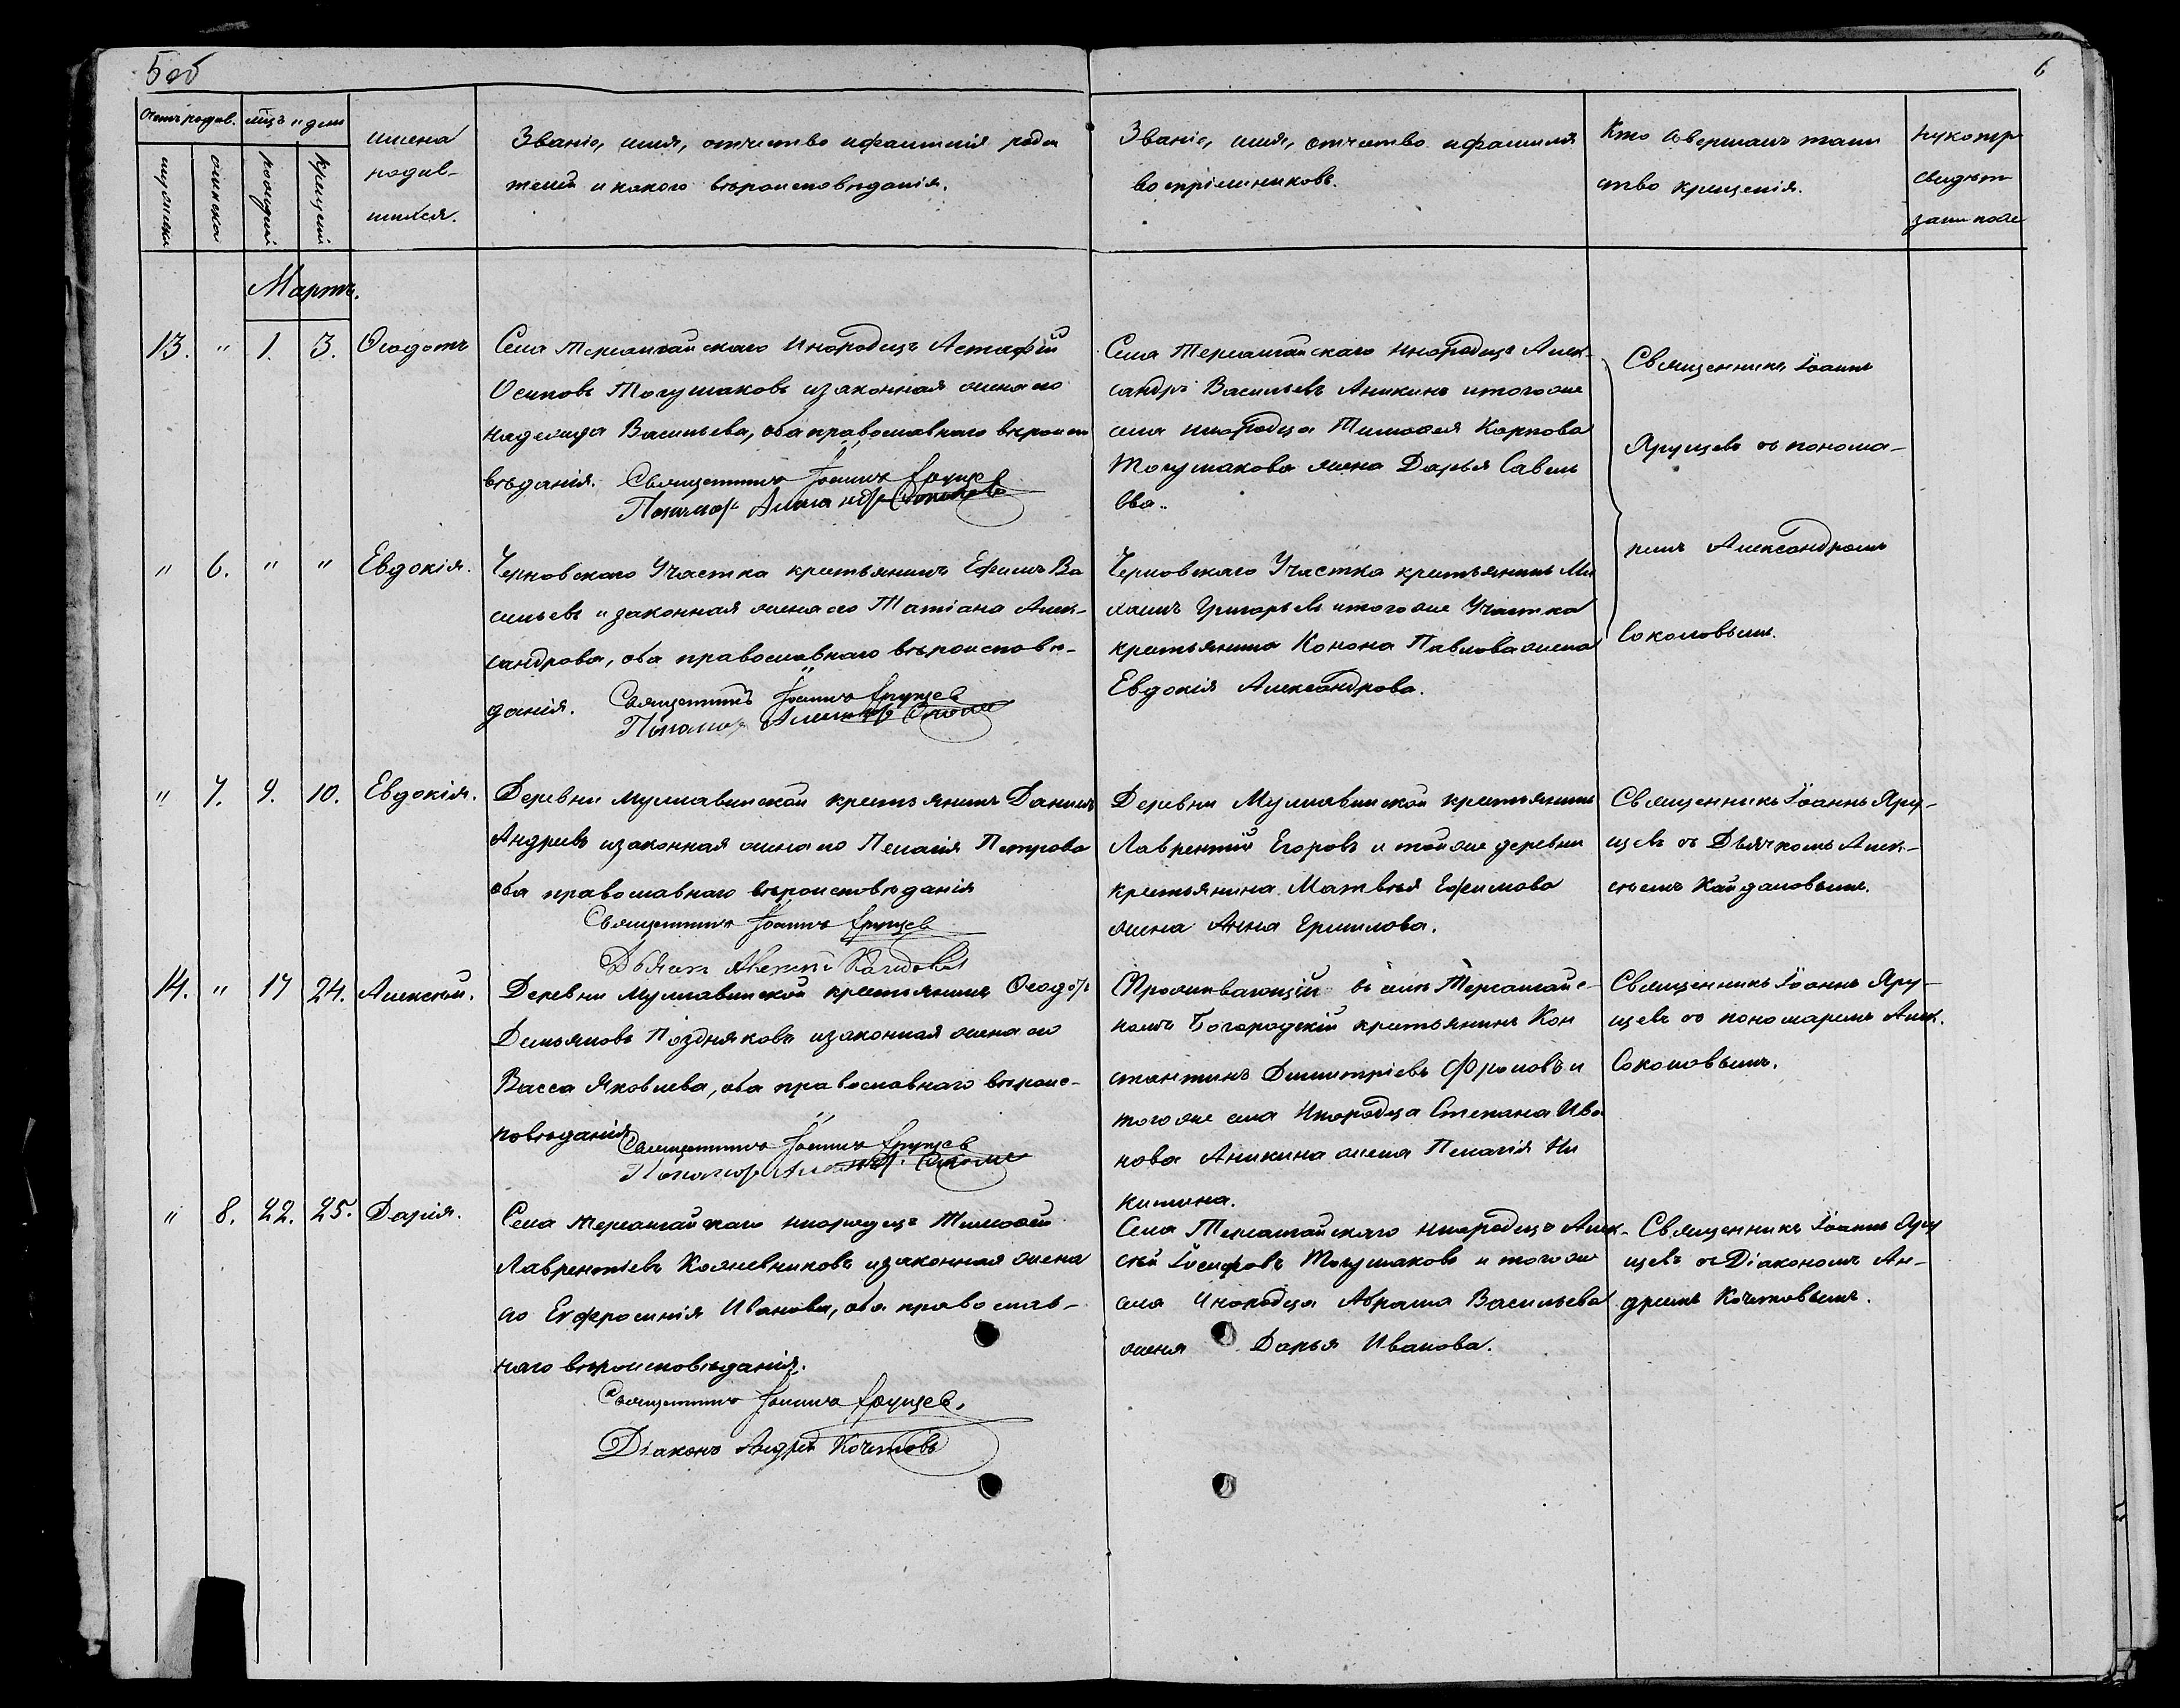 5 об
6
Счетъ родив.
мѣсяцъ и дни
имена
родив-
шихся.
Званіе, имя, отчество и фамилія роди
телей и какого вѣроисповѣданія.
Званіе, имя, отчество и фамилія
воспріемниковъ.
Кто совершалъ таин
ство крещенія.
Рукопр
свидѣт
запи поже
мужеска
женска
рожденія
крещенія
Мартъ.
13. " 1. 3. Ѳеодотъ
Села Терсалгайскаго инородецъ Астафій
Осиповъ Тогушаковъ и законная жена его
Надежда Васильева, оба православнаго вѣроиспо
вѣданія. Священникъ Іоаннъ Ярущев
Пономарь Александръ Соколовъ
Села Терсалгайскаго инородецъ Алек-
сандръ Васильевъ Аникинъ и того же
села инородца Тимоѳея Карпова
Тогушакова жена Дарья Савель
ева.
Священникъ Іоаннъ
Ярущевъ съ понома-
ремъ Александромъ
Соколовымъ.
" 6. " " Евдокія.
Черновскаго Участка крестьянинъ Ефимъ Ва
сильевъ и законная жена его Татіана Алек-
сандрова, оба православнаго вѣроисповѣ-
данія. Священникъ Іоаннъ Ярущев
Пономарь Александръ Соколов
Черновскаго Участка крестьянинъ Ми
хаилъ Григорьевъ и того же Участка
крестьянина Конона Павлова жена
Евдокія Александрова.
" 7. 9. 10. Евдокія.
Деревни Муллавинской крестьянинъ Данилъ
Андреевъ и законная жена его Пелагія Петрова
оба православнаго вѣроисповѣданія
Священникъ Іоаннъ Ярущев
Дьячекъ Алексѣй Кайдаловъ
Деревни Муллавинской крестьянинъ
Лаврентій Егоровъ и той же деревни
крестьянина Матвѣя Ефимова
жена Анна Ермилова.
Священникъ Іоаннъ Яру-
щевъ съ Дьячкомъ Алек-
сѣемъ Кайдаловымъ.
14. " 17 24. Алексѣй.
Деревни Муллавинской крестьянинъ Ѳеодоръ
Демьяновъ Поздняковъ и законная жена его
Васса Яковлева, оба православнаго вѣроис-
повѣданія Священникъ Іоаннъ Ярущев
Пономарь Александръ Соколов
Проживающій въ селѣ Терсалгайс-
комъ Богородскій крестьянинъ Кон
стантинъ Димитріевъ Фроловъ и
того же села Инородца Степана Ива
нова Аникина жена Пелагія Ни
китина.
Священникъ Іоаннъ Яру-
щевъ съ пономаремъ Алек.
Соколовымъ.
" 8. 22. 25. Дарія.
Села Терсалгайскаго инородецъ Тимоѳей
Лаврентіевъ Кожевниковъ и законная жена
его Евфросинія Иванова, оба православ-
наго вѣроисповѣданія.
Священникъ Іоаннъ Ярущев.
Діаконъ Андрей Кочетовъ
Села Терсалгайскаго инородецъ Алек-
сѣй Іосифовъ Тогушаковъ и того же
села Инородца Абрама Васильева
жена Дарья Иванова.
Священникъ Іоаннъ Яру
щевъ съ Діакономъ Ан-
дреемъ Кочетовымъ.